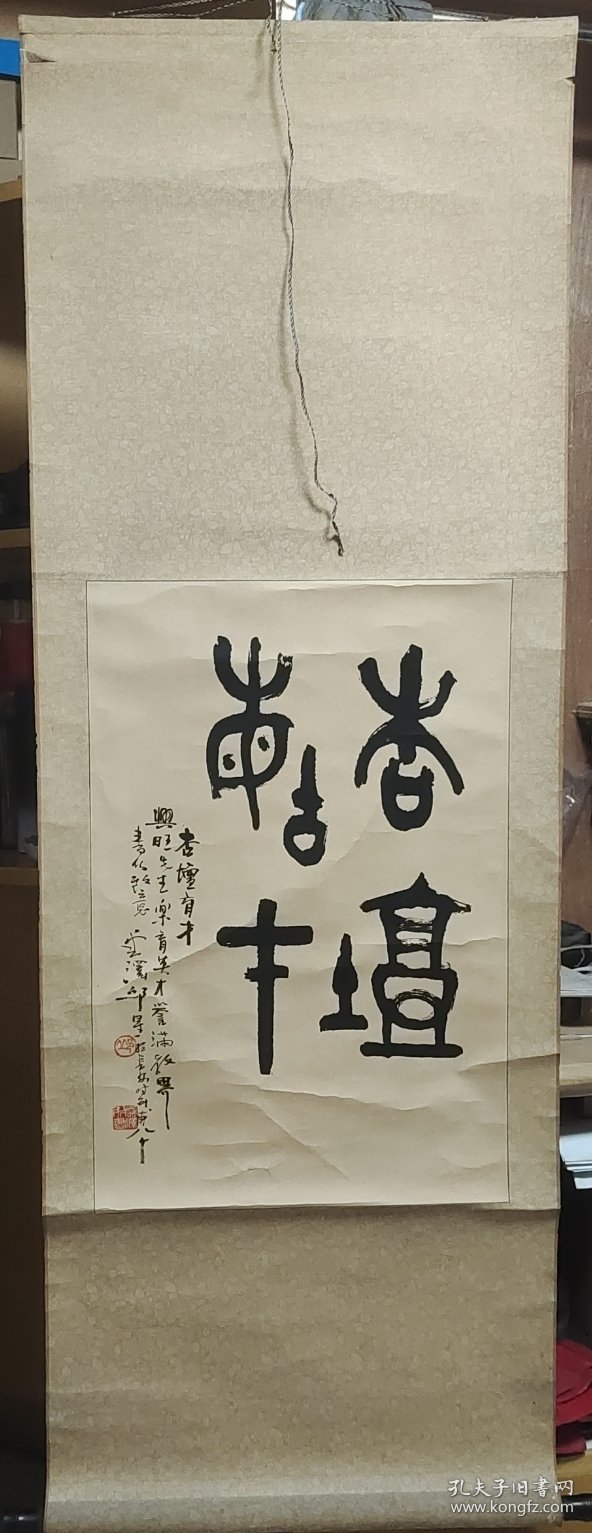 杏壇
育才
杏壇育才
興旺先生樂育英才譽滿教界
書此致意
孔夫子旧书网
www.kongfz.com